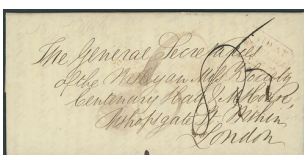 The General Secretaries
of the Wesleyan Miss. Society
Centenary Hall & Mis. House
Bishopsgate St. Within
London